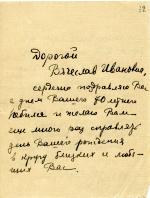 32
Дорогой
Вячеслав Иванович,
сердечно поздравляю Вас
с днем Вашего 70 летнего
юбилея и желаю Вам
еще много раз справлять
день Вашего рождения
в кругу близких и любя-
щих Вас.